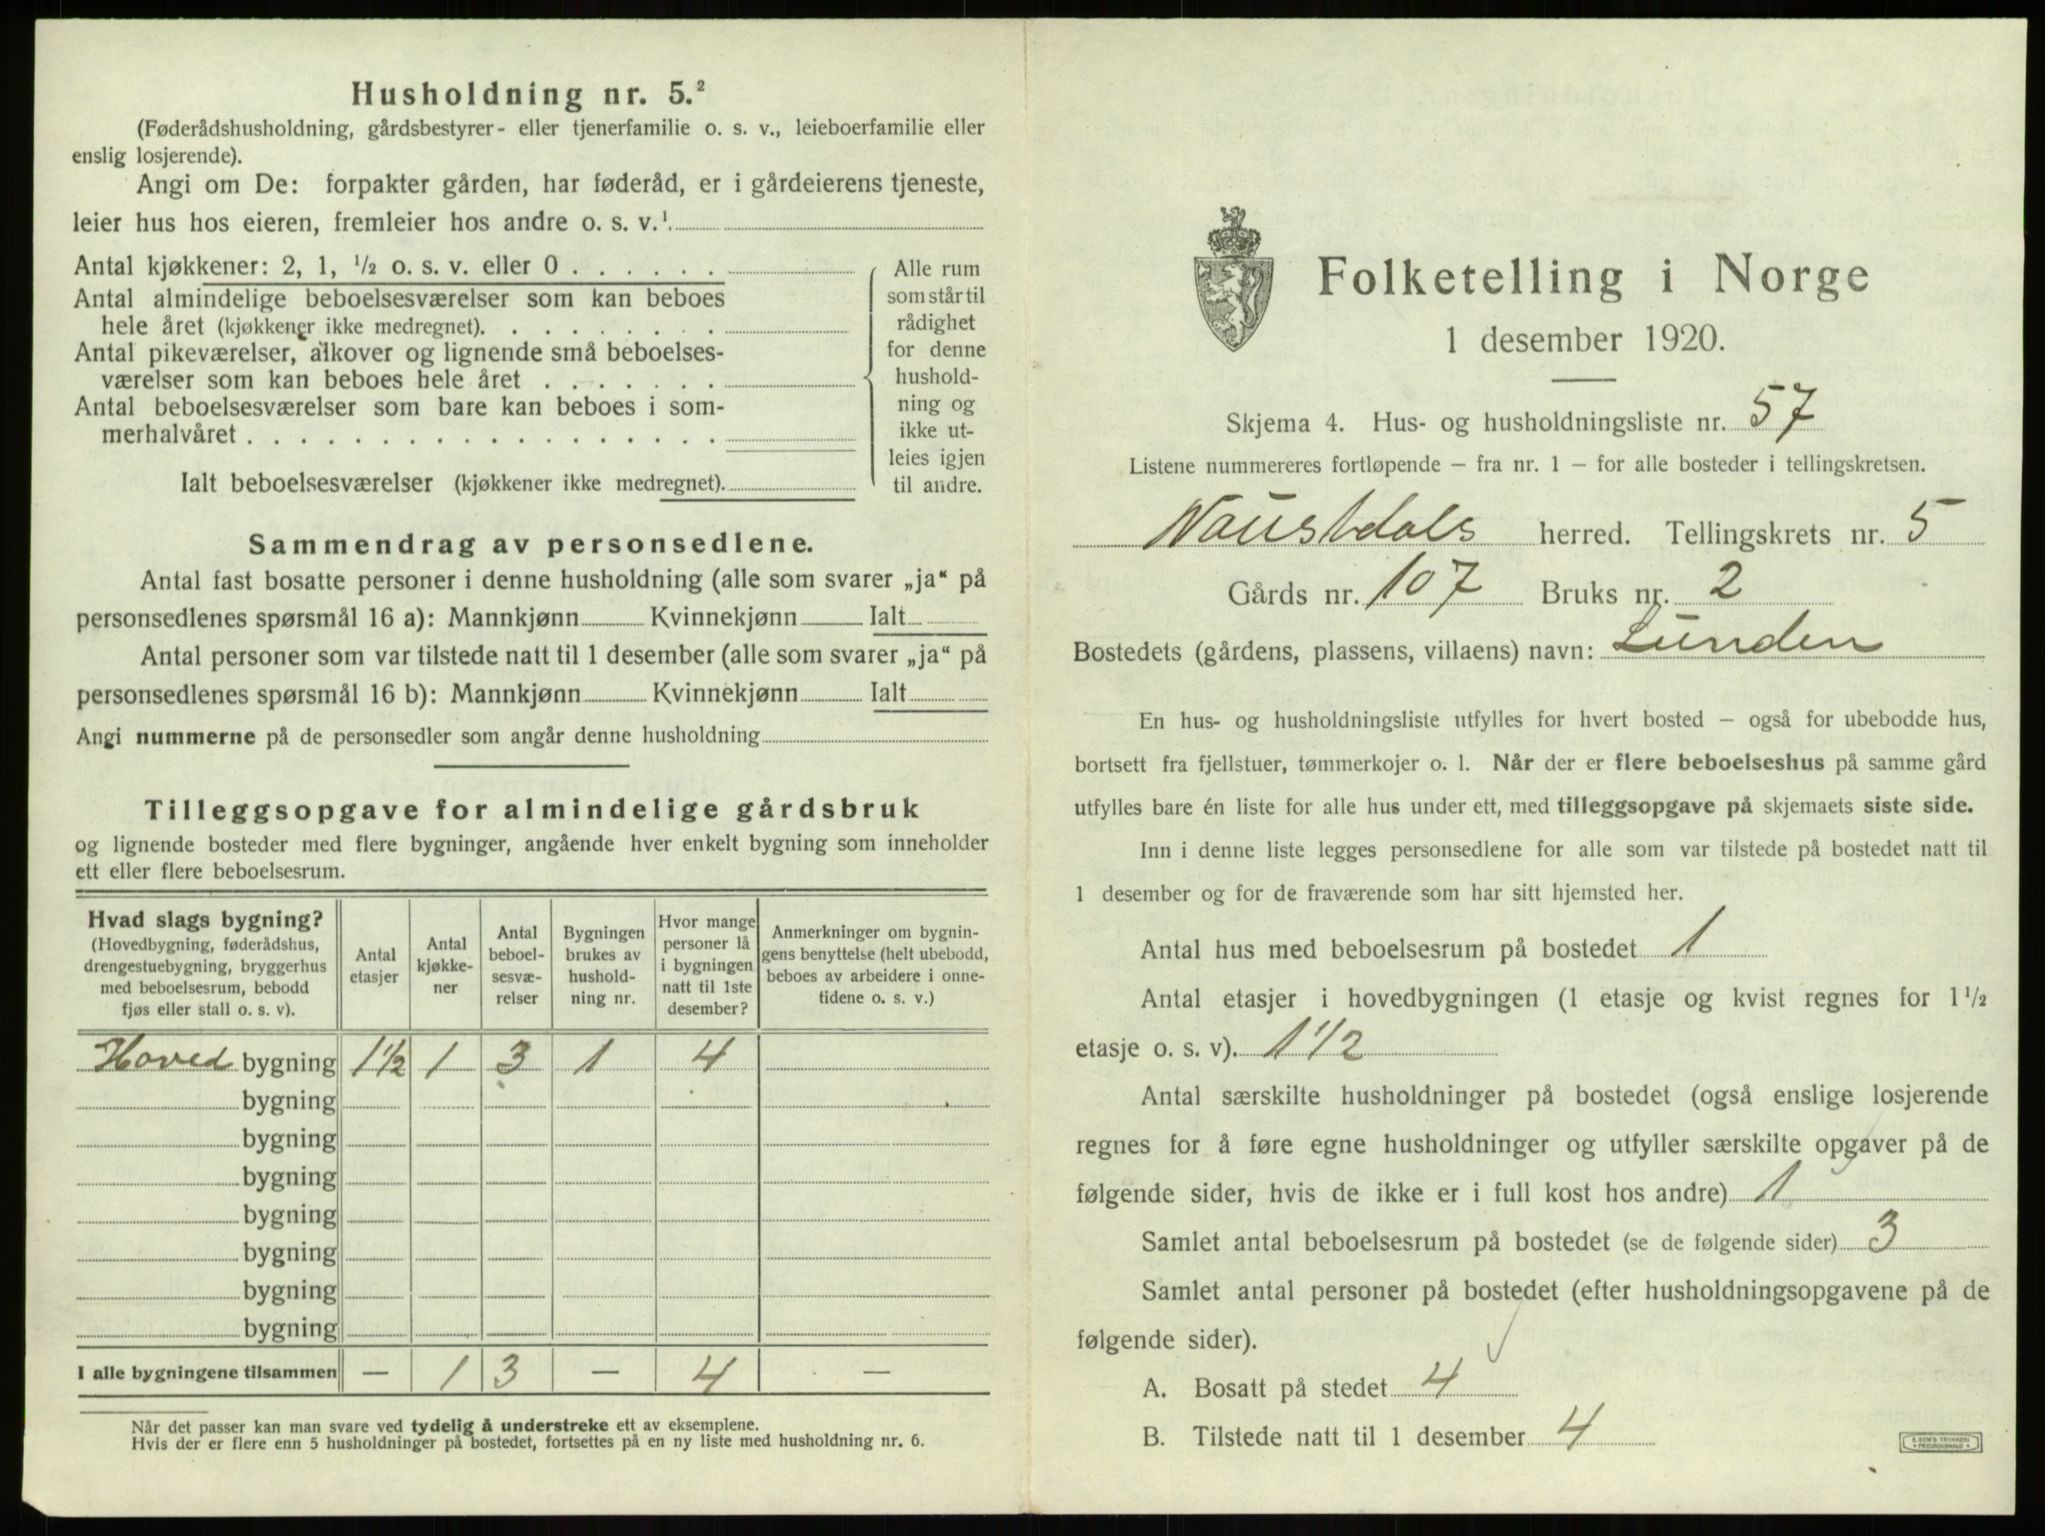 Husholdning nr. 5.²
(Føderådshusholdning, gårdsbestyrer- eller tjenerfamilie o. s. v., leieboerfamilie eller
enslig losjerende).
Angi om De: forpakter gården, har føderåd, er i gårdeierens tjeneste,
leier hus hos eieren, fremleier hos andre o. s. v.¹
Antal kjøkkener: 2, 1, ½ o. s. v. eller 0 . . . . . .
Antal almindelige beboelsesværelser som kan beboes
hele året (kjøkkener ikke medregnet). . . . . . . . .
Antal pikeværelser, alkover og lignende små beboelses-
værelser som kan beboes hele året . . . . . . .
Antal beboelsesværelser som bare kan beboes i som-
merhalvåret . . . . . . . . . . . . . . . . . .
Ialt beboelsesværelser (kjøkkener ikke medregnet).
Alle rum
som står til
rådighet
for denne
hushold-
ning og
ikke ut-
leies igjen
til andre.
Sammendrag av personsedlene.
Antal fast bosatte personer i denne husholdning (alle som svarer „ja“ på
personsedlenes spørsmål 16 a): Mannkjønn Kvinnekjønn Ialt
Antal personer som var tilstede natt til 1 desember (alle som svarer „ja“ på
personsedlenes spørsmål 16 b): Mannkjønn Kvinnekjønn Ialt
Angi nummerne på de personsedler som angår denne husholdning
Tilleggsopgave for almindelige gårdsbruk
og lignende bosteder med flere bygninger, angående hver enkelt bygning som inneholder
ett eller flere beboelsesrum.
Hvad slags bygning?
(Hovedbygning, føderådshus,
drengestuebygning, bryggerhus
med beboelsesrum, bebodd
fjøs eller stall o. s. v).
Antal
etasjer
Antal
kjøkke-
ner
Antal
beboel-
sesvæ-
relser
Bygningen
brukes av
hushold-
ning nr.
Hvor mange
personer lå
i bygningen
natt til 1ste
desember?
Anmerkninger om bygnin-
gens benyttelse (helt ubebodd,
beboes av arbeidere i onne-
tidene o. s. v.)
Hoved bygning 1½ 1 3 1 4
bygning
bygning
bygning
bygning
bygning
bygning
bygning
I alle bygningene tilsammen — 1 3 — 4 —
Når det passer kan man svare ved tydelig å understreke ett av eksemplene.
Hvis der er flere enn 5 husholdninger på bostedet, fortsettes på en ny liste med husholdning nr. 6.
Folketelling i Norge
1 desember 1920.
Skjema 4. Hus- og husholdningsliste nr. 57
Listene nummereres fortløpende – fra nr. 1 – for alle bosteder i tellingskretsen.
Naustdals herred. Tellingskrets nr. 5
Gårds nr. 107 Bruks nr. 2
Bostedets (gårdens, plassens, villaens) navn: Lunden
En hus- og husholdningsliste utfylles for hvert bosted – også for ubebodde hus,
bortsett fra fjellstuer, tømmerkojer o. l. Når der er flere beboelseshus på samme gård
utfylles bare én liste for alle hus under ett, med tilleggsopgave på skjemaets siste side.
Inn i denne liste legges personsedlene for alle som var tilstede på bostedet natt til
1 desember og for de fraværende som har sitt hjemsted her.
Antal hus med beboelsesrum på bostedet 1
Antal etasjer i hovedbygningen (1 etasje og kvist regnes for 1½
etasje o. s. v). 1 1/2
Antal særskilte husholdninger på bostedet (også enslige losjerende
regnes for å føre egne husholdninger og utfyller særskilte opgaver på de
følgende sider, hvis de ikke er i full kost hos andre) 1
Samlet antal beboelsesrum på bostedet (se de følgende sider) 3
Samlet antal personer på bostedet (efter husholdningsopgavene på de
følgende sider).
A. Bosatt på stedet 4
B. Tilstede natt til 1 desember 4